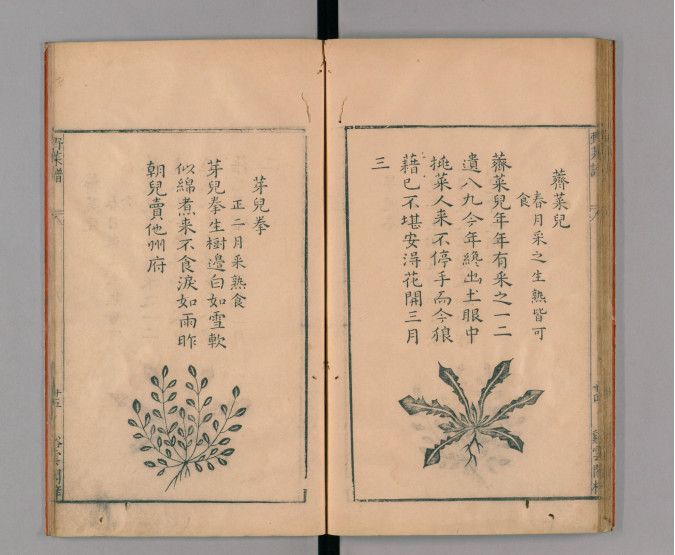 薺菜兒
春月采之生熟皆可
食
薺菜兒年年有采之一二
遺八九今年終出土眼中
挑菜人来不停手而今狼
藉已不堪安得花開三月
三
芽兒拳
正二月采熟食
芽兒拳生樹邊白如雪軟
似綿煮来不食淚如雨昨
朝兒賣他州府
野菜譜
十五